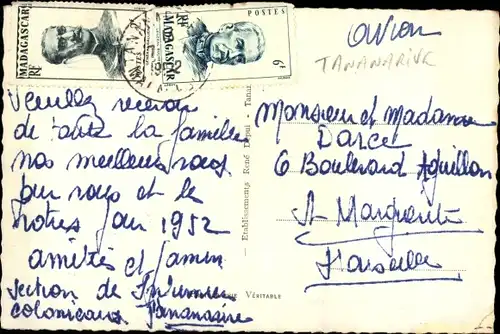 MADAGASCAR
RF
POSTES
MADAGASCAR
RF
6F
avion
TANANARIVE
Veuillez recevoir
de toute la famille
nos meilleurs vœux
pour vous et les
votres pour 1952
amitiés et
section de
coloniaux Tananarive
Etablissements René
VÉRITABLE
Monsieur et Madame
DARCE
6 Boulevard Aguillon
St Marguerite
Marseille